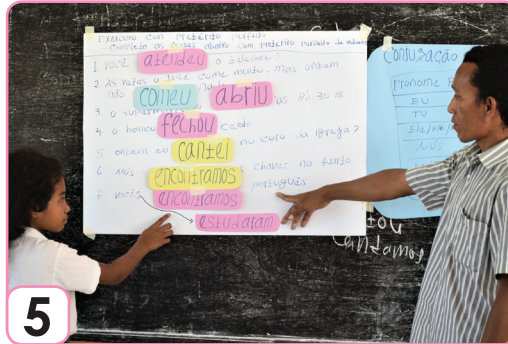 Exercício com Pretérito Perfeito
Completa as frases abaixo com Pretérito Perfeito do
1 Você atendeu o telefone?
2 Às vezes o José come muito, mas ontem
não comeu nada
3 o abriu às 8:30 m
4 o banco fechou cedo
5 ontem eu cantei no coro da Igreja?
6 Nós encontramos chaves no
7 vocês encontramos português
estudaram
Conjugação
Pronome
EU
TU
Ele/ela/
Nós
cantamos
5